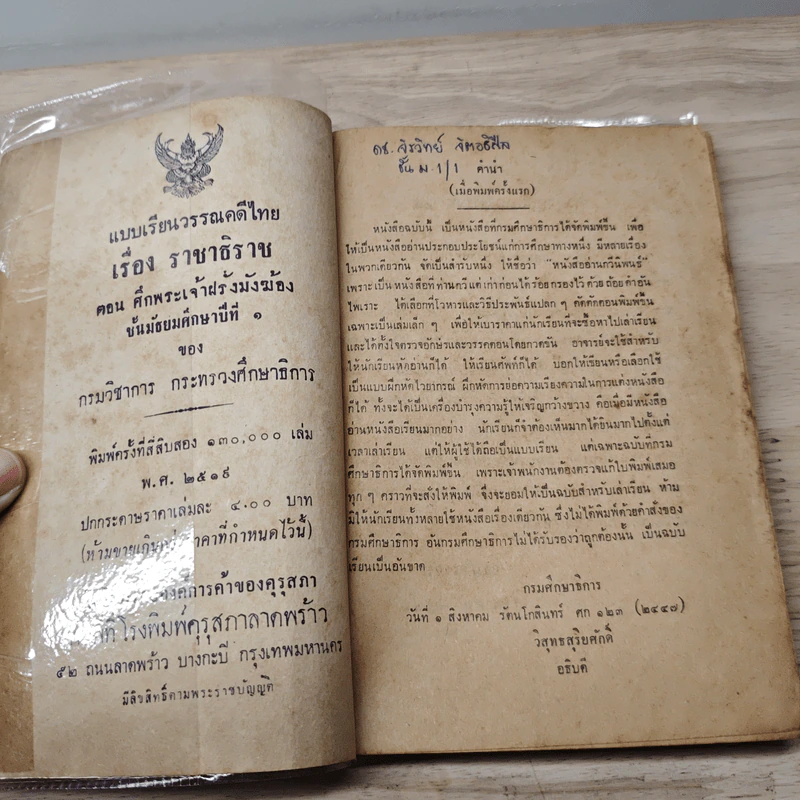 แบบเรียนวรรณคดีไทย
เรื่อง ราชาธิราช
ตอน ศึกพระเจ้าฝรั่งมังฆ้อง
ชั้นมัธยมศึกษาปีที่ ๑
ของ
กรมวิชาการ กระทรวงศึกษาธิการ
พิมพ์ครั้งที่สี่สิบสอง ๑๓๐,๐๐๐ เล่ม
พ.ศ. ๒๕๑๙
ปกกระดาษราคาเล่มละ ๔.๐๐ บาท
(ห้ามขายเกินกว่าราคาที่กำหนดไว้นี้)
องค์การค้าของคุรุสภา
ที่โรงพิมพ์คุรุสภาลาดพร้าว
๕๒ ถนนลาดพร้าว บางกะปิ กรุงเทพมหานคร
มีลิขสิทธิ์ตามพระราชบัญญัติ
ดช. จิรวิทย์
ชั้น ม 1/1 คำนำ
(เมื่อพิมพ์ครั้งแรก)
หนังสือฉบับนี้ เป็นหนังสือที่กรมศึกษาธิการได้จัดพิมพ์ขึ้น เพื่อ
ให้เป็นหนังสืออ่านประกอบประโยชน์แก่การศึกษาทางหนึ่ง มีหลายเรื่อง
ในพวกเดียวกัน จัดเป็นสำรับหนึ่ง ให้ชื่อว่า "หนังสืออ่านกวีนิพนธ์"
เพราะเป็นหนังสือที่ท่านกวีแต่เก่าก่อนได้ร้อยกรองไว้ ด้วยถ้อยคำอัน
ไพเราะ ได้เลือกที่โวหารและวิธีประพันธ์แปลก ๆ คัดตัดตอนพิมพ์ขึ้น
เฉพาะเป็นเล่มเล็ก ๆ เพื่อให้เบาราคาแก่นักเรียนที่จะซื้อหาไปเล่าเรียน
และได้ตั้งใจตรวจอักษรและวรรคตอนโดยกวดขัน อาจารย์จะใช้สำหรับ
ให้นักเรียนหัดอ่านก็ได้ ให้เรียนศัพท์ก็ได้ บอกให้เขียนหรือเลือกใช้
เป็นแบบฝึกหัดไวยากรณ์ ฝึกหัดการย่อความเรียงความในการแต่งหนังสือ
ก็ได้ ทั้งจะได้เป็นเครื่องบำรุงความรู้ให้เจริญกว้างขวาง คือเมื่อมีหนังสือ
อ่านหนังสือเรียนมากอย่าง นักเรียนก็จำต้องเห็นมากได้ยินมากไปตั้งแต่
เวลาเล่าเรียน แต่ให้ผู้ใช้ได้ถือเป็นแบบเรียน แต่เฉพาะฉบับที่กรม
ศึกษาธิการได้จัดพิมพ์ขึ้น เพราะเจ้าพนักงานต้องตรวจแก้ใบพิมพ์เสมอ
ทุก ๆ คราวที่จะสั่งให้พิมพ์ จึงจะยอมให้เป็นฉบับสำหรับเล่าเรียน ห้าม
มิให้นักเรียนทั้งหลายใช้หนังสือเรื่องเดียวกัน ซึ่งไม่ได้พิมพ์ด้วยคำสั่งของ
กรมศึกษาธิการ อันกรมศึกษาธิการไม่ได้รับรองว่าถูกต้องนั้น เป็นฉบับ
เรียนเป็นอันขาด
กรมศึกษาธิการ
วันที่ ๑ สิงหาคม รัตนโกสินทร์ ศก ๑๒๓ (๒๔๔๗)
วิสุทธสุริยศักดิ์
อธิบดี